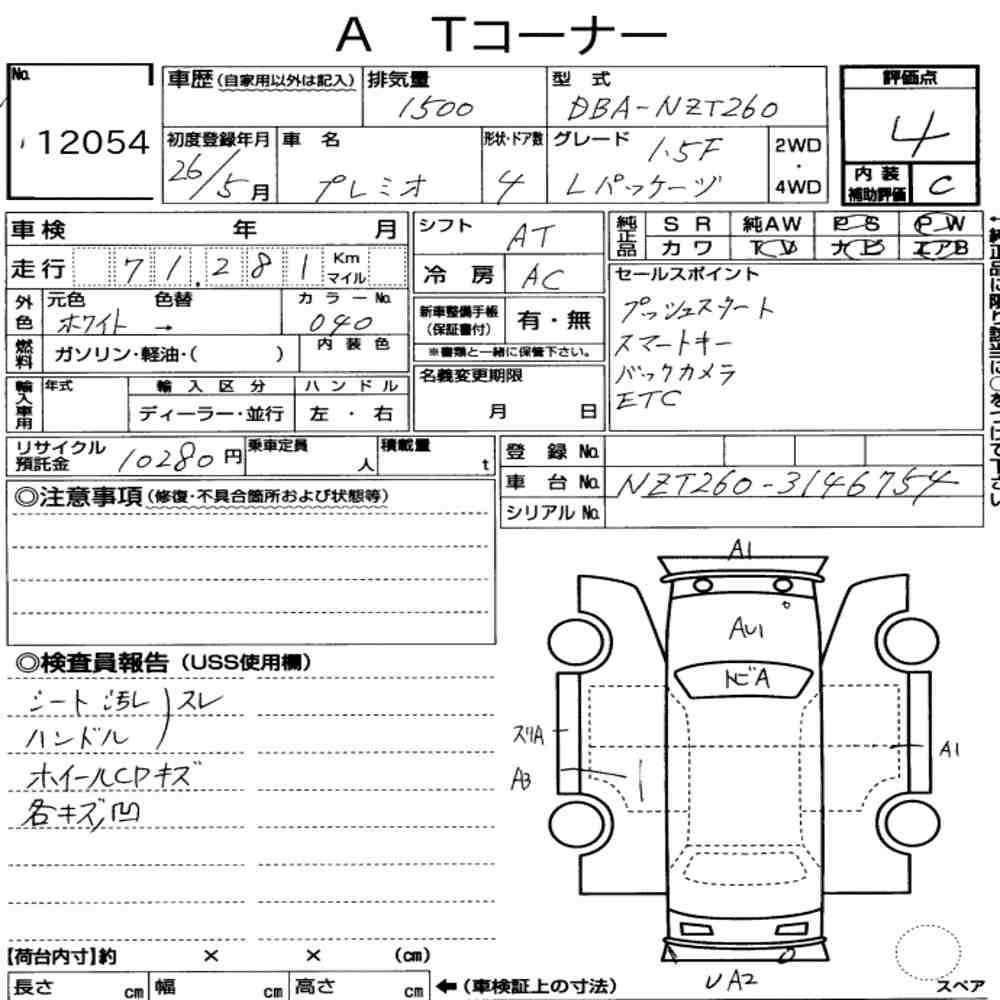 A Tコーナー
No.
12054
車歴(自家用以外は記入)
排気量
1500
型 式
DBA-NZT260
評価点
4
初度登録年月
26/5月
車 名
プレミオ
形状・ドア数
4
グレード
1.5F
Lパッケージ
2WD
・
4WD
内 装
補助評価
C
車検 年 月
シフト
AT
純正品
S R 純AW P S P W
カ ワ T V ナ ビ エアB
←純正品に限り該当に○をつけて下さい
走行
71,281
Km
マイル
冷 房
AC
セールスポイント
プッシュスタート
スマートキー
バックカメラ
ETC
外色
元色 色替
ホワイト →
カ ラ ー No.
040
新車整備手帳
(保証書付)
有・無
※書類と一緒に保管下さい。
燃料
ガソリン・軽油・( )
内 装 色
輸入車用
年式
輸 入 区 分
ディーラー・並行
ハ ン ド ル
左 ・ 右
名義変更期限
月 日
リサイクル
預託金
10280円
乗車定員
人
積載量
t
登 録 No.
車 台 No.
NZT260-3146754
シリアル No.
◎注意事項(修復・不具合箇所および状態等)
◎検査員報告(USS使用欄)
シート汚れ)スレ
ハンドル
ホイールCPキズ
各キズ凹
A1
AU1
トビA
スリA
A3
A1
UA2
スペア
【荷台内寸】約 × × (cm)
長さ cm 幅 cm 高さ cm ←(車検証上の寸法)